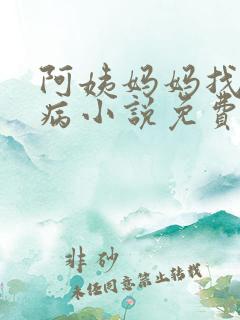 阿姨妈妈找
病小説免費
非砂
未经同意禁止转载